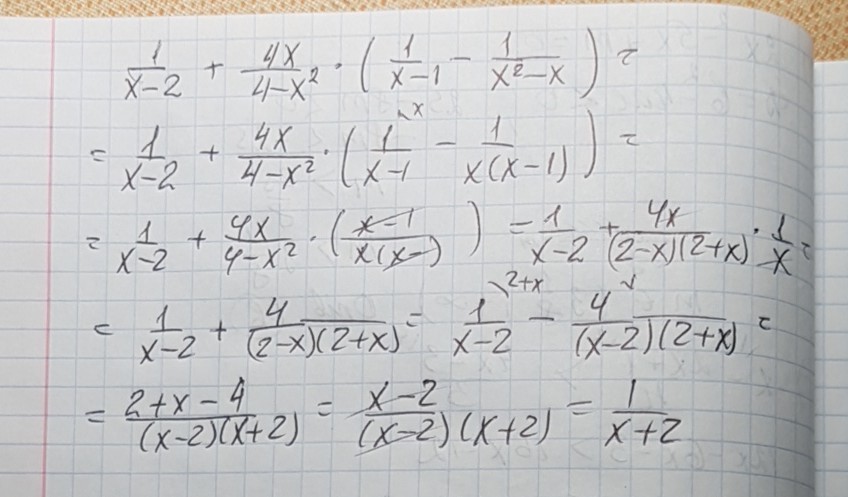 1/(x-2) + 4x/(4-x²) · (1/(x-1) - 1/(x²-x)) =
= 1/(x-2) + 4x/(4-x²) · (1/(x-1) \x - 1/(x(x-1))) =
= 1/(x-2) + 4x/(4-x²) · ((x-1)/(x(x-1))) = 1/(x-2) + 4x/((2-x)(2+x)) · 1/x =
= 1/(x-2) + 4/((2-x)(2+x)) = 1/(x-2) \2+x - 4/((x-2)(2+x)) =
= (2+x-4)/((x-2)(x+2)) = (x-2)/((x-2)(x+2)) = 1/(x+2)